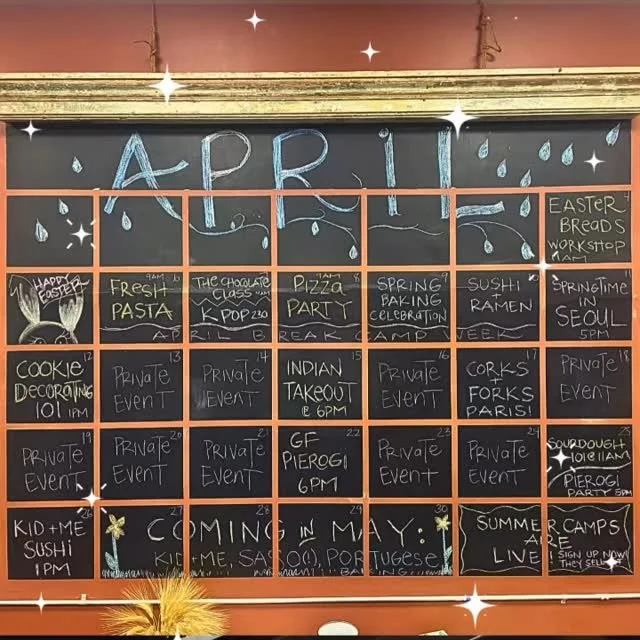 APRIL
4
EASTER
BREADS
WORKSHOP
11AM
HAPPY
EASTER
9AM 6
FRESH
PASTA
THE CHOCOLATE
CLASS 9AM
KPOP 230
9AM 8
PIZZA
PARTY
9
SPRING
BAKING
CELEBRATION
10
SUSHI
+
RAMEN
11
SPRINGTIME
IN
SEOUL
5PM
APRIL BREAK CAMP WEEK
12
COOKIE
DECORATING
101 1PM
13
PRIVATE
EVENT
14
PRIVATE
EVENT
15
INDIAN
TAKEOUT
@ 6PM
16
PRIVATE
EVENT
17
CORKS
+
FORKS
PARIS!
18
PRIVATE
EVENT
19
PRIVATE
EVENT
20
PRIVATE
EVENT
21
PRIVATE
EVENT
22
GF
PIEROGI
6PM
23
PRIVATE
EVENT
24
PRIVATE
EVENT
25
SOURDOUGH
101@11AM
PIEROGI
PARTY 5PM
26
KID+ME
SUSHI
1PM
27 28 29 30
COMING IN MAY:
KID+ME, PORTUGESE
BAKING
SUMMER CAMPS
ARE
LIVE!
SIGN UP NOW
THEY